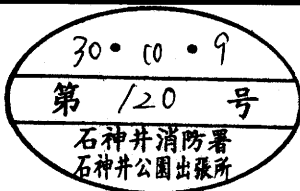 30・10・9
第 120 号
石神井消防署
石神井公園出張所